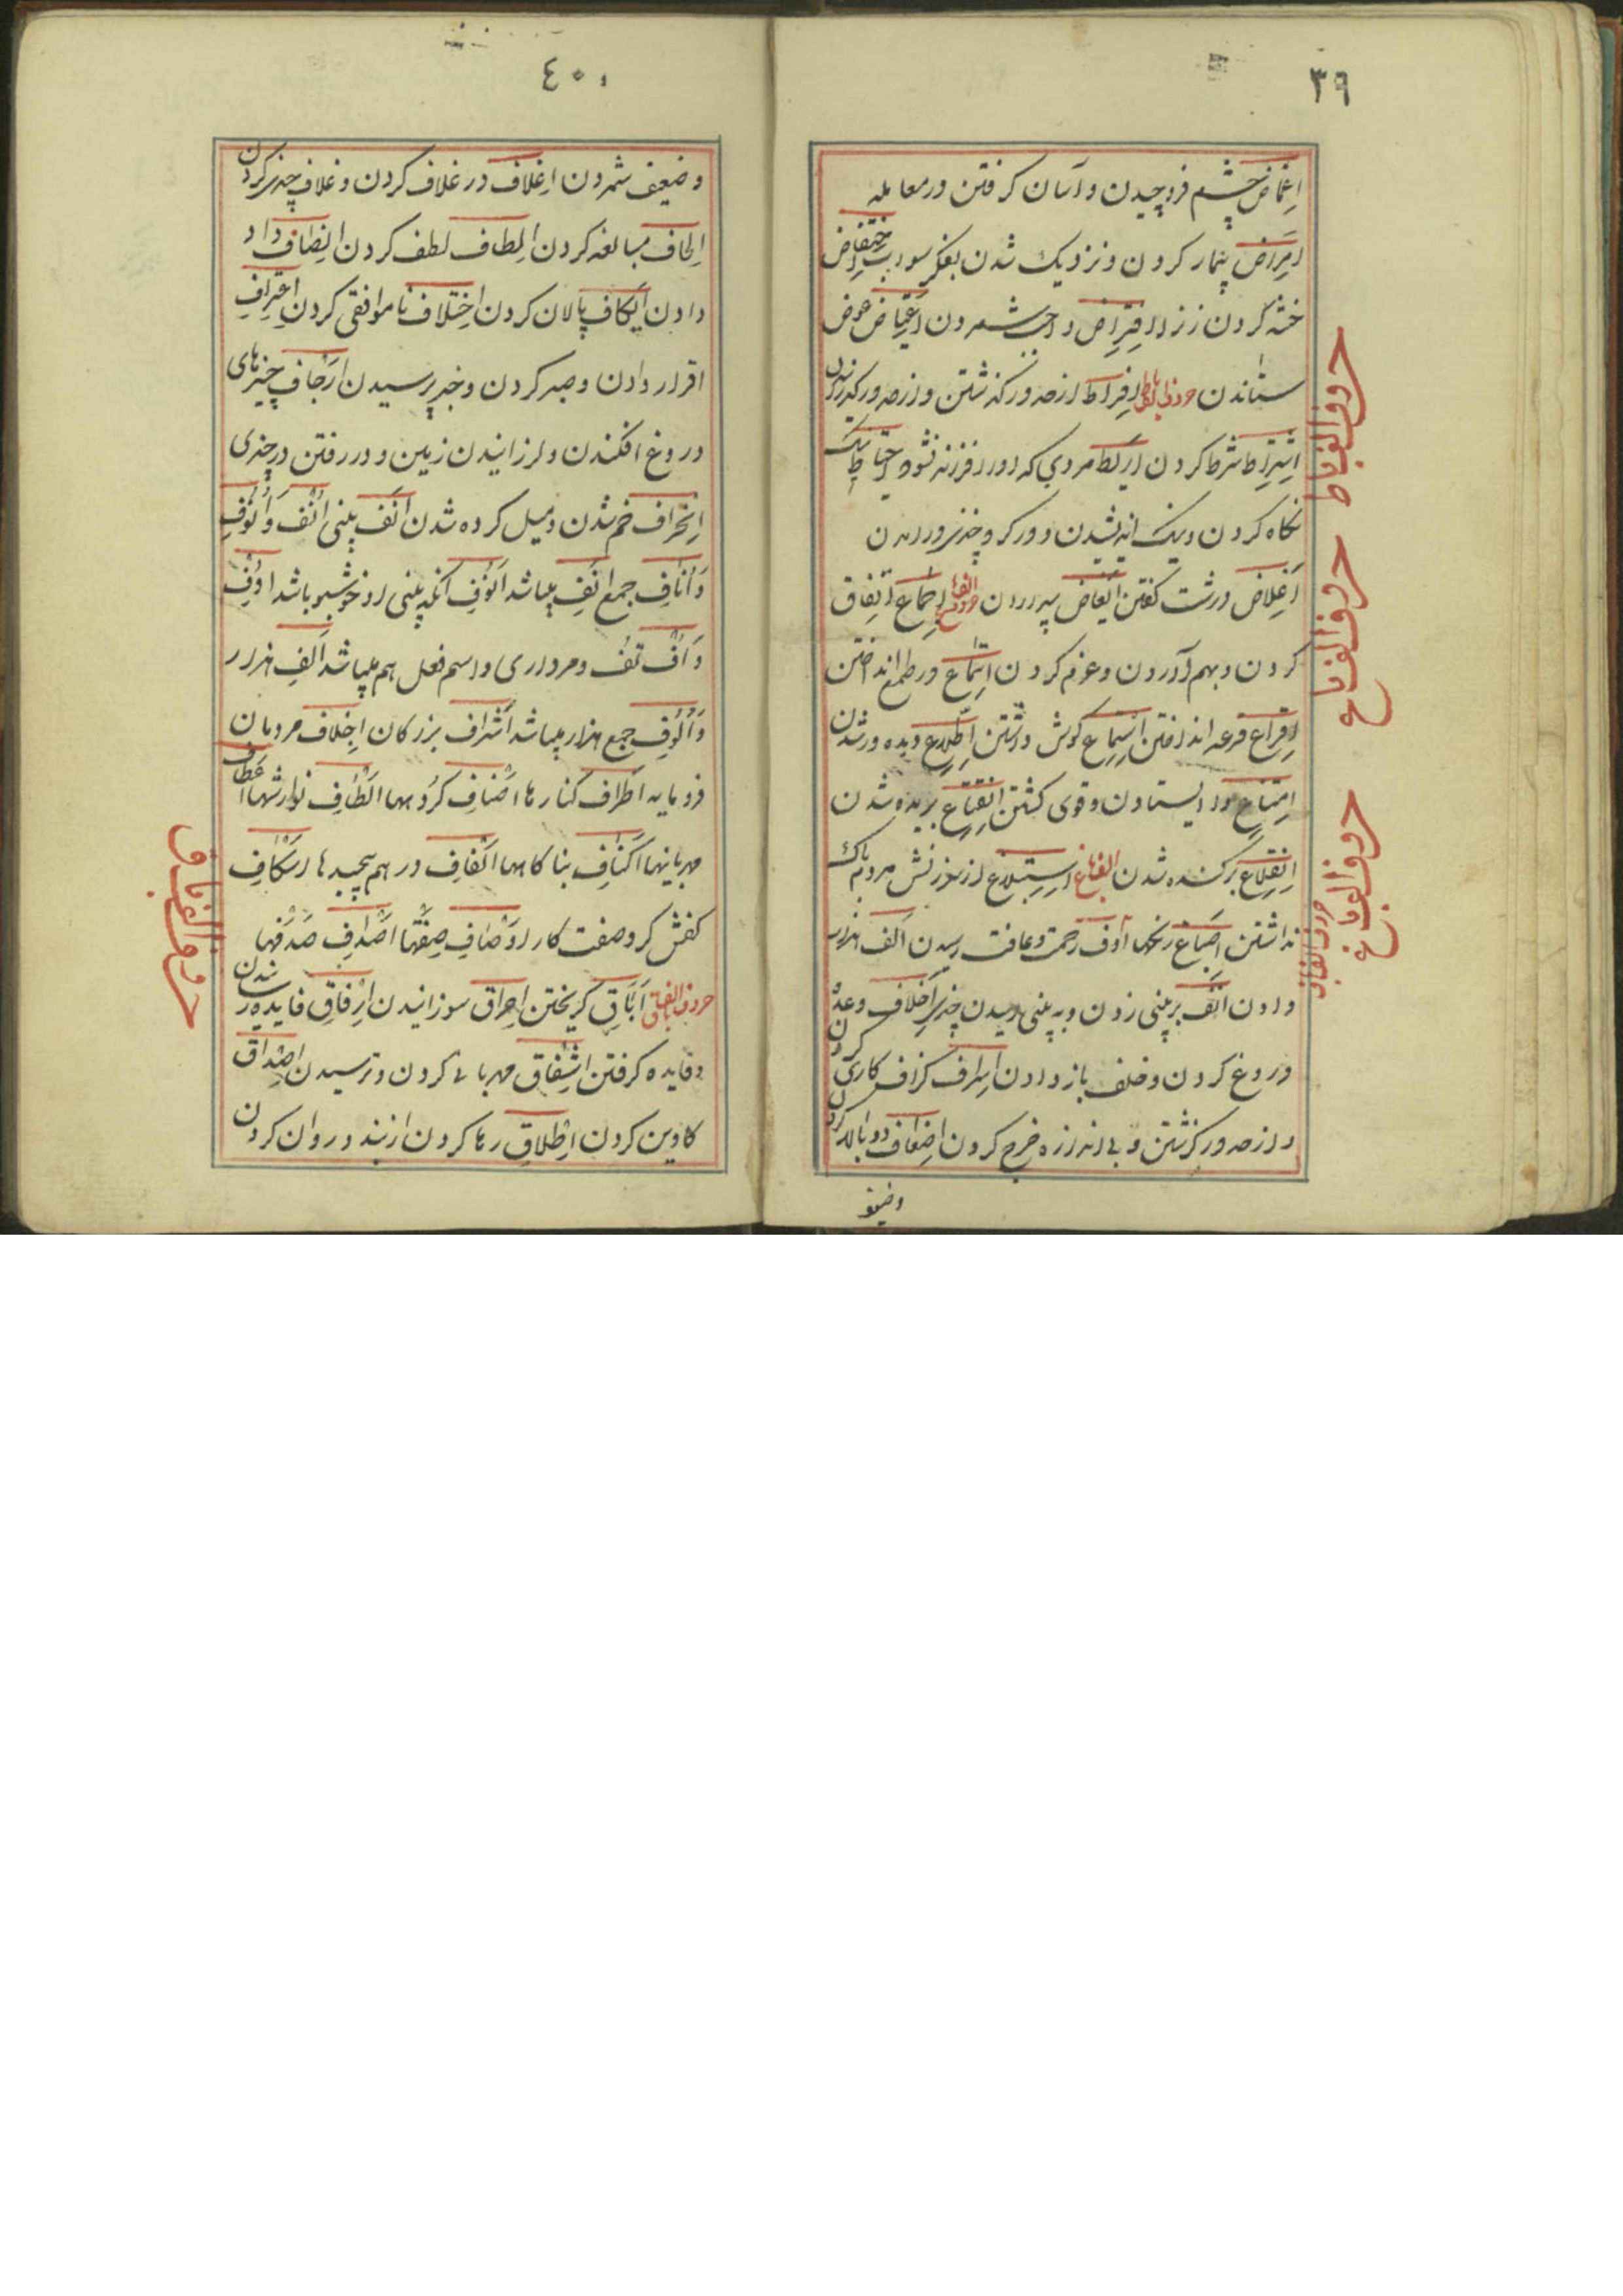 ٣٩
اِغماض چشم فروچیدن و آسان کرفتن در معامله
اِمراض بیمار کردن و نزدیک شدن بفکر
ختنه کردن زن اِفتراض واجب شمردن اِعتیاض عوض
ستاندن حروف الف باط اِفراط از حد در کذشتن و از حد در
اِشتراط شرط کردن مردی که او را فرزند نشود احتیاط نیک
نکاه کردن و نیک اندیشیدن و در کرد چیزی در آمدن
اَغلاض درشت کفتن حروف الف باع اِجماع اتفاق
کردن و بهم آوردن و عزم کردن در طمع انداختن
اِقراع قرعه انداختن استماع کوش داشتن اِطّلاع دیده ور شدن
اِمتناع وا ایستادن و قوی کشتن اِنقطاع بریده شدن
اِنقلاع برکنده شدن الف باغ از سرزنش مردم باک
نداشتن اصباغ رنکها رحمت و عافت رسیدن الف هزار
دادن انف بر بینی زدن و به بینی رسیدن چیزی اِخلاف وعده
دروغ کردن و خلف باز دادن اِسراف کزاف کاری کردن
و از حد در کزشتن و بی اندازه خرج کردن اِضعاف دو بالا کردن
وضعیف
حروف الف باط
حروف الف باع
حروف الف باغ
حروف الف باف
٤٠
و ضعیف شمردن اِغلاف در غلاف کردن و غلاف چیزی کردن
اِلحاف مبالغه کردن اِلطاف لطف کردن اِنصاف داد
دادن ایکاف پالان کردن اِختلاف ناموافقی کردن اعتراف
اقرار دادن و صبر کردن و خبر پرسیدن اِرجاف خبرهای
دروغ افکندن و لرزانیدن زمین و در رفتن در چیزی
اِنحراف خم شدن و میل کرده شدن اَنف بینی اُنُف و اُنُوف
و آناف جمع انف میباشد اَنُوف آنکه بینی او خوشبو باشد اُوف
و اُفّ تف و مرداری و اسم فعل هم میباشد اَلف هزار
و اُلُوف جمع هزار میباشد اَشراف بزرکان اِخلاف مردمان
فرومایه اطراف کنارها اَصناف کروهها اَلطاف نوازشها اعطاف
مهربانیها اَکناف پناکاهها اَلفاف در هم پیچیدها اِسکاف
کفش کر و صفت کار اَوصاف صفتها اَصداف صدفها
حروف الف باق اِباق کریختن اِحراق سوزانیدن اِرفاق فایده رسانیدن
و فایده کرفتن اِشفاق مهربانی کردن و ترسیدن اِصداق
کاوین کردن اِطلاق رها کردن از بند و روان کردن
حروف الف باق